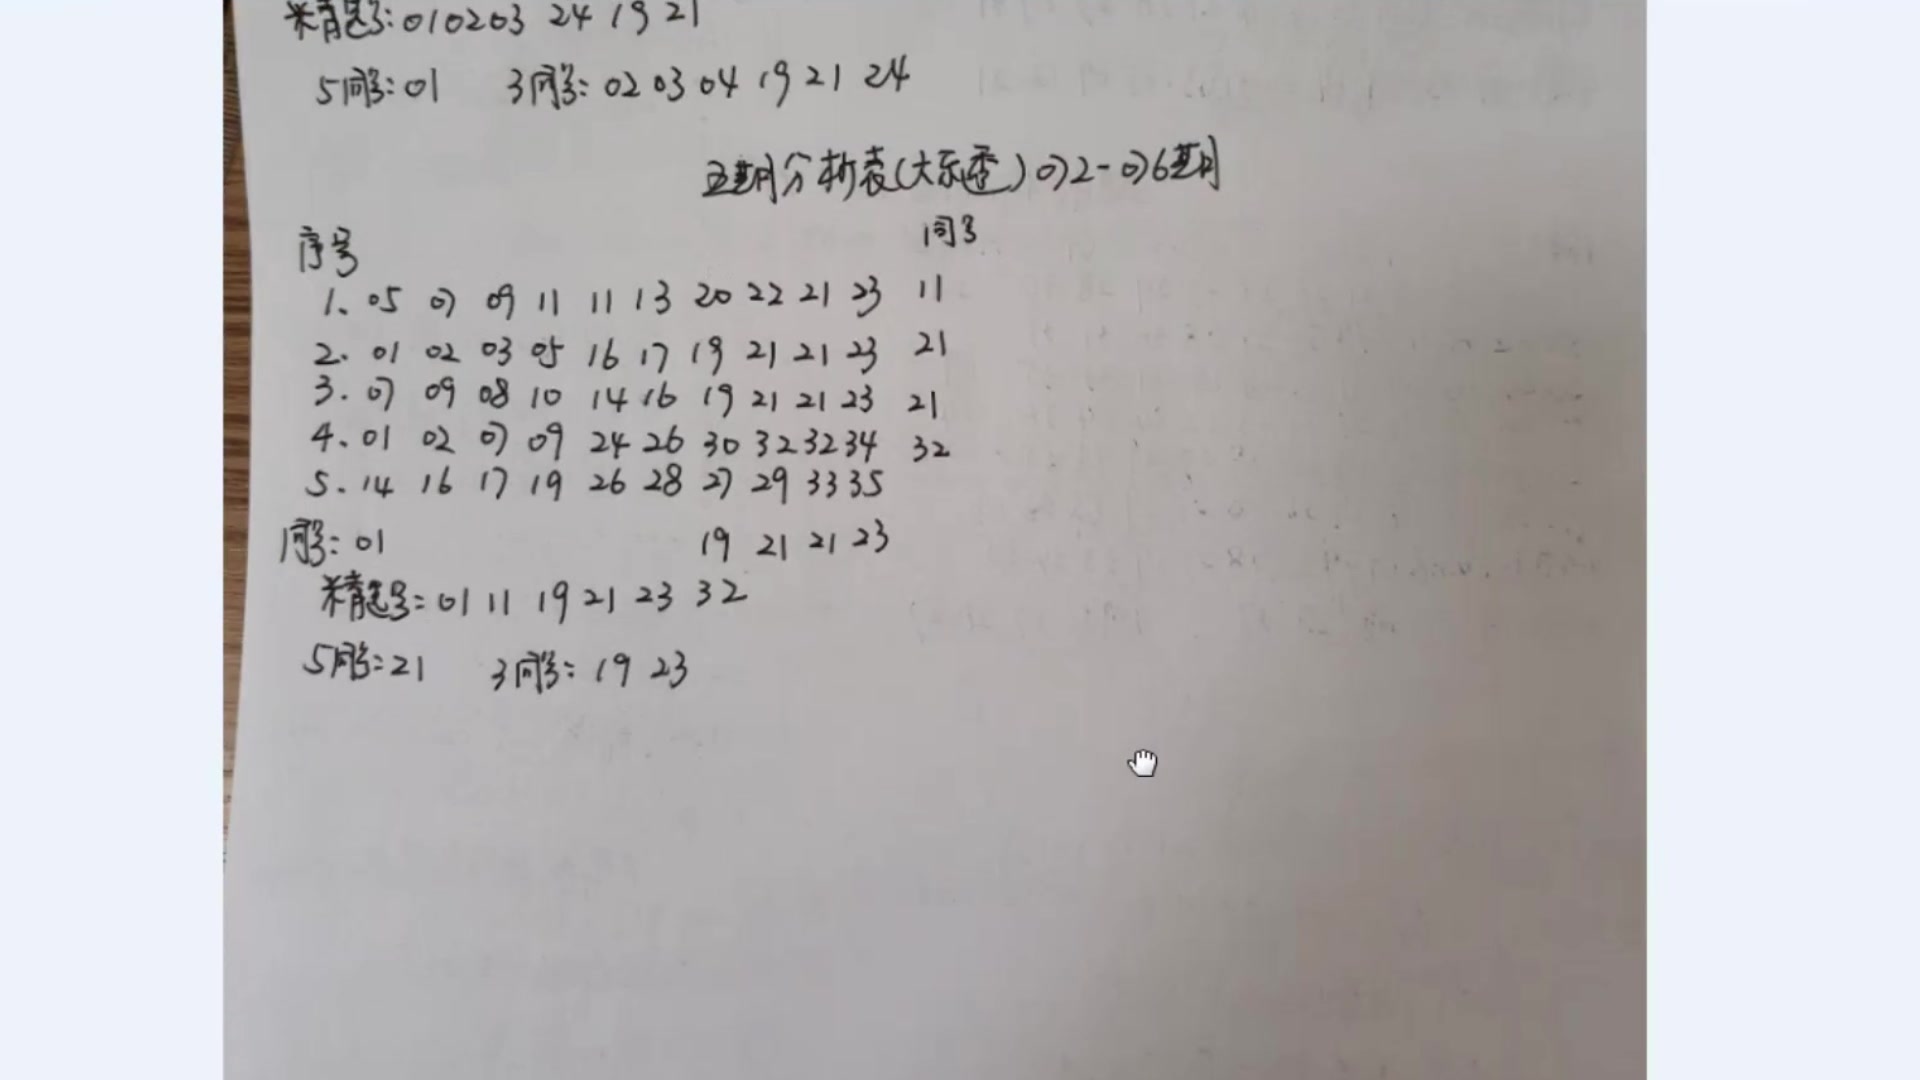 精选号:010203 24 19 21
5同号:01 3同号:02 03 04 19 21 24
五期分析表(大乐透)072-076期
序号 同号
1、05 07 09 11 11 13 20 22 21 23 11
2. 01 02 03 05 16 17 19 21 21 23 21
3. 07 09 08 10 14 16 19 21 21 23 21
4. 01 02 07 09 24 26 30 32 32 34 32
5. 14 16 17 19 26 28 27 29 33 35
同号:01 19 21 21 23
精选号:01 11 19 21 23 32
5同号:21 3同号:19 23